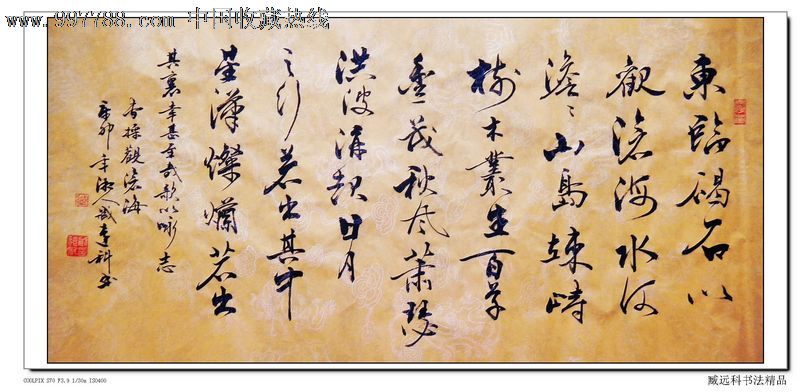 www.997788.com 中国收藏热线
東臨碣石以
觀滄海水何
澹〻山島竦峙
樹木叢生百草
豐茂秋風蕭瑟
洪波湧起日月
之行若出其中
星漢燦爛若出
其裏幸甚至哉歌以咏志
曹操觀滄海
辛卯年湘人臧遠科书
COOLPIX S70 F3.9 1/30s ISO400
臧远科书法精品